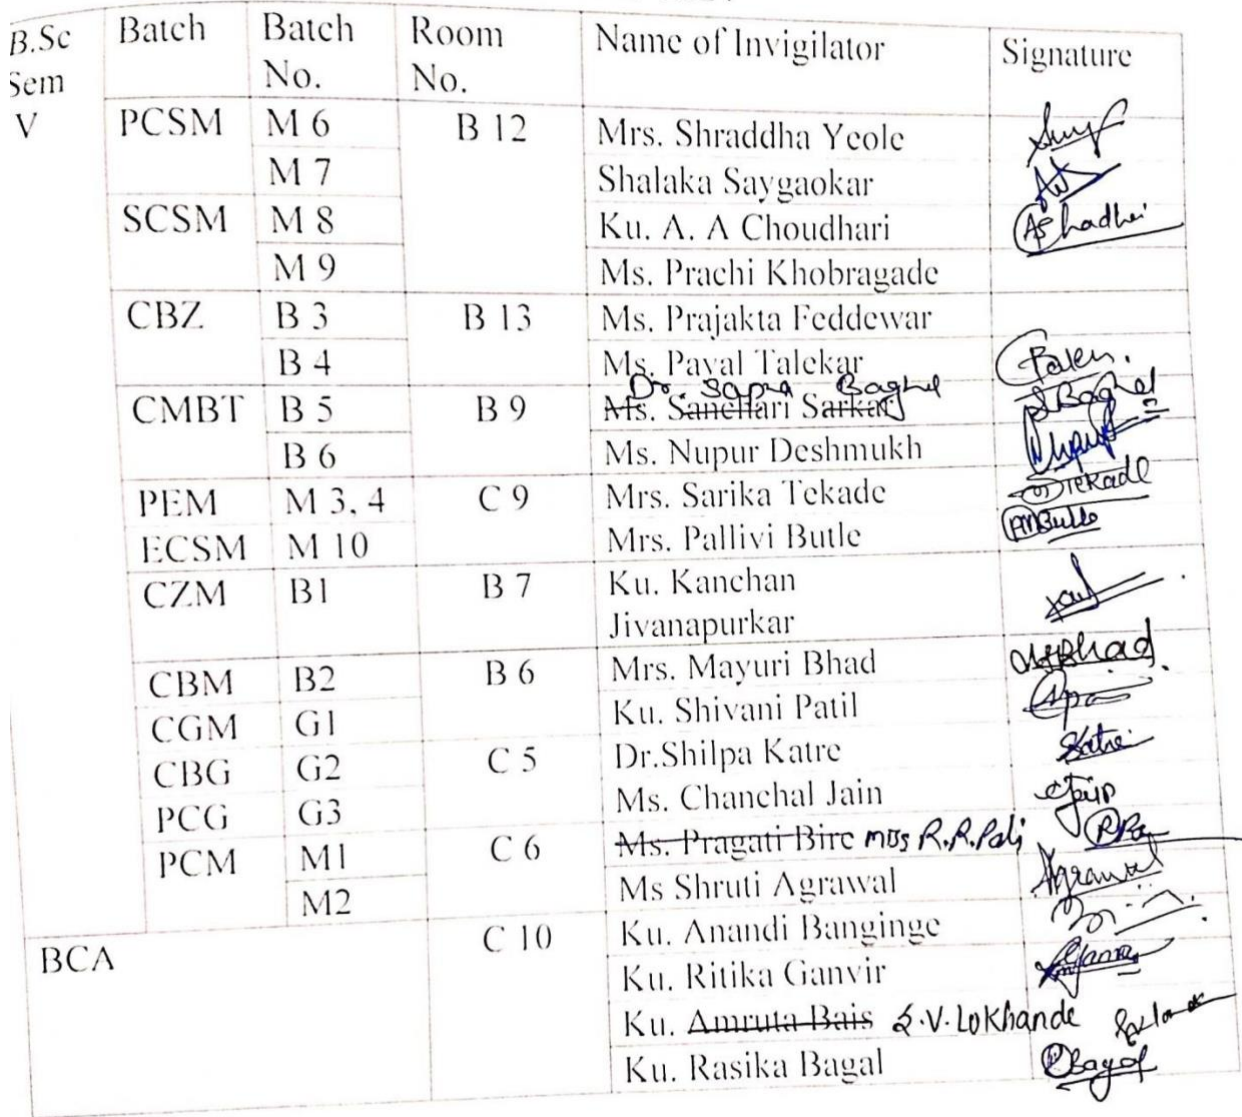 B.Sc Sem Batch Batch No. Room No. Name of Invigilator Signature
V PCSM M 6 B 12 Mrs. Shraddha Yeole
M 7 Shalaka Saygaokar
SCSM M 8 Ku. A. A Choudhari
M 9 Ms. Prachi Khobragade
CBZ B 3 B 13 Ms. Prajakta Feddewar
B 4 Ms. Payal Talekar
Dr. Sapna Baghel
CMBT B 5 B 9 Ms. Sanchari Sarkar Baghel
B 6 Ms. Nupur Deshmukh
PEM M 3, 4 C 9 Mrs. Sarika Tekade Tekade
ECSM M 10 Mrs. Pallivi Butle
CZM B1 B 7 Ku. Kanchan
Jivanapurkar
CBM B2 B 6 Mrs. Mayuri Bhad Bhad
CGM G1 Ku. Shivani Patil
CBG G2 C 5 Dr.Shilpa Katre Katre
PCG G3 Ms. Chanchal Jain
PCM M1 C 6 Ms. Pragati Bire R.R.
M2 Ms Shruti Agrawal Agrawal
BCA C 10 Ku. Anandi Banginge
Ku. Ritika Ganvir
Ku. Amruta Bais S.V. Lokhande
Ku. Rasika Bagal